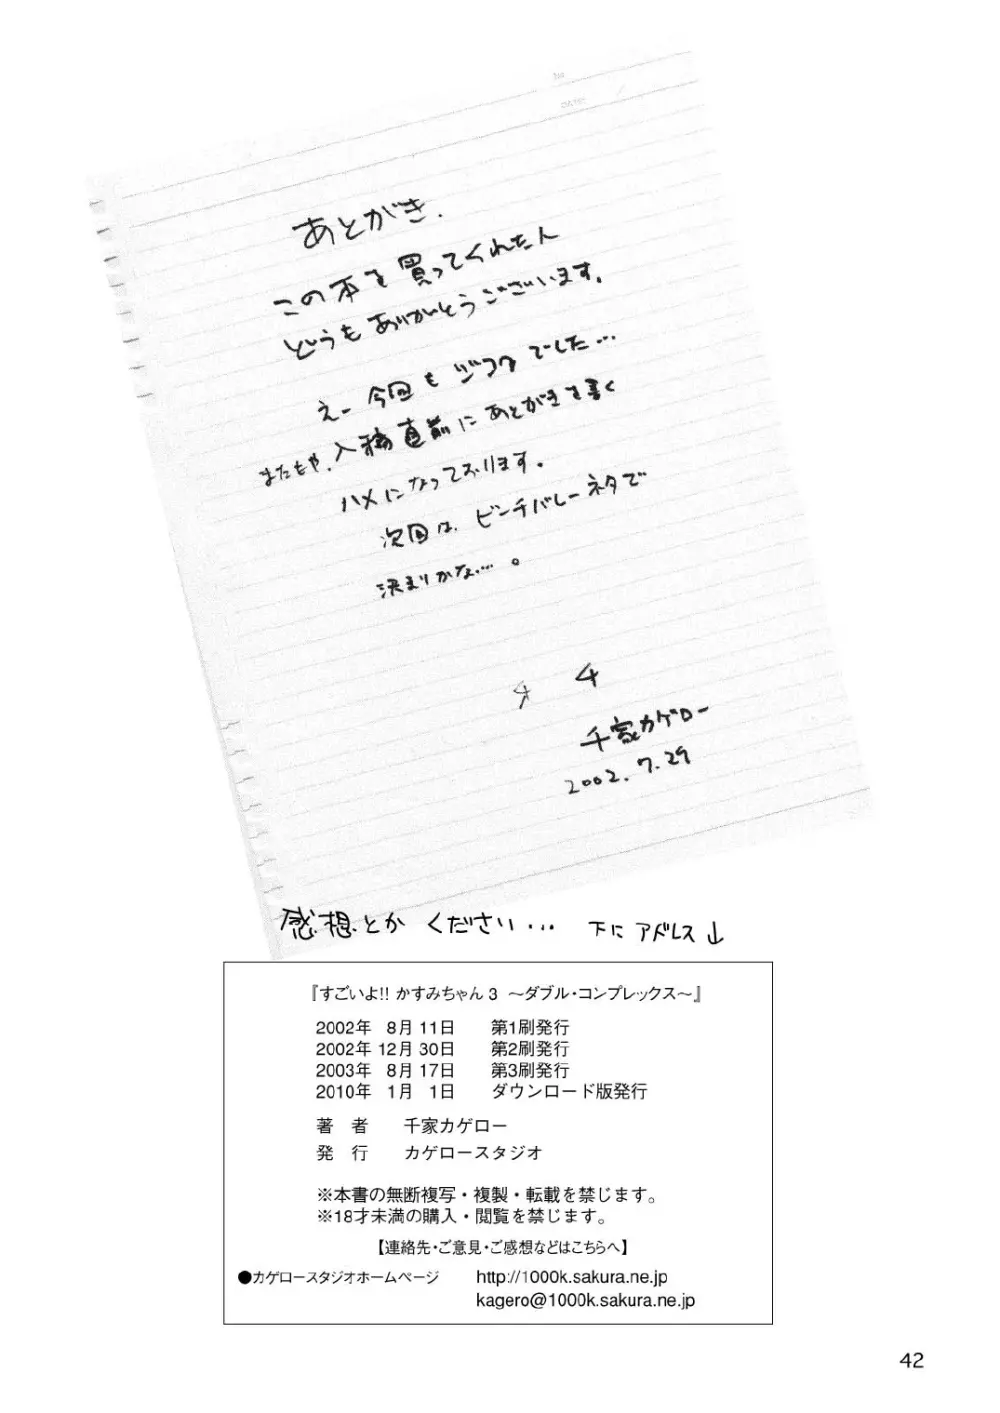 あとがき.
この本を買ってくれた人
どうもありがとうございます.
えー今回もジフクでした…
またもや、入稿直前にあとがきを書く
ハメになっております.
次回は、ピンチバレーネタで
決まりかな….。
千家カゲロー
2002.7.29
感想とかください… 下にアドレス↓
『すごいよ!! かすみちゃん 3 ～ダブル・コンプレックス～』
2002年 8月 11日 第1刷発行
2002年 12月 30日 第2刷発行
2003年 8月 17日 第3刷発行
2010年 1月 1日 ダウンロード版発行
著 者 千家カゲロー
発 行 カゲロースタジオ
※本書の無断複写・複製・転載を禁じます。
※18才未満の購入・閲覧を禁じます。
【連絡先・ご意見・ご感想などはこちらへ】
●カゲロースタジオホームページ http://1000k.sakura.ne.jp
kagero@1000k.sakura.ne.jp
42